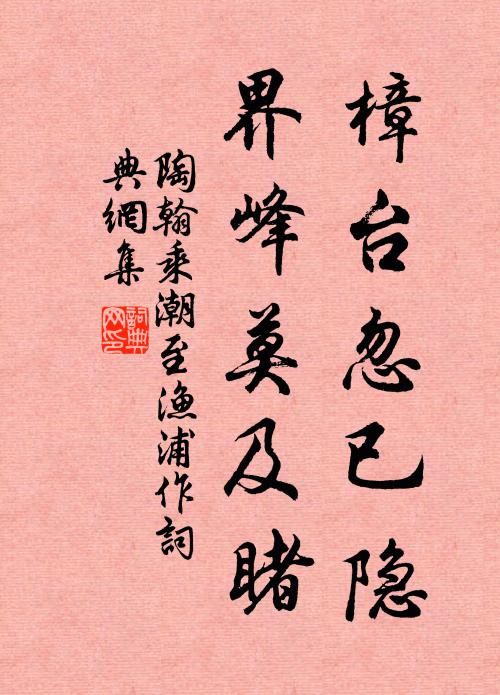 樟台忽已隐
界峰莫及睹
陶翰乘潮至渔浦作詞
典網集
詞典
网印